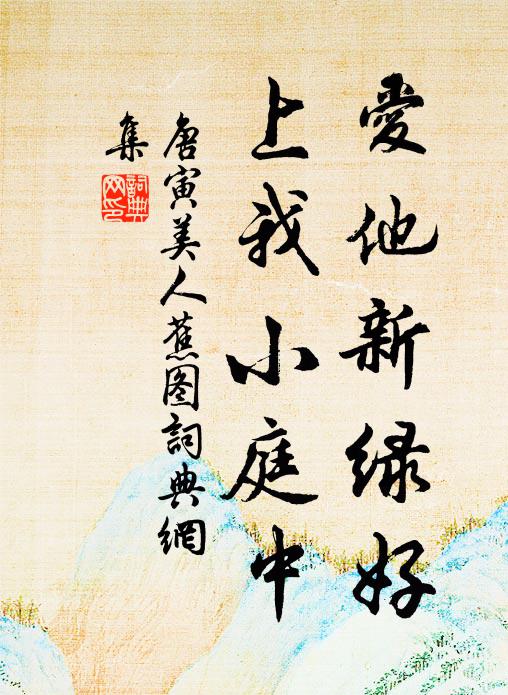 愛他新绿好
上我小庭中
唐寅美人蕉图詞典網
集
詞典
网印